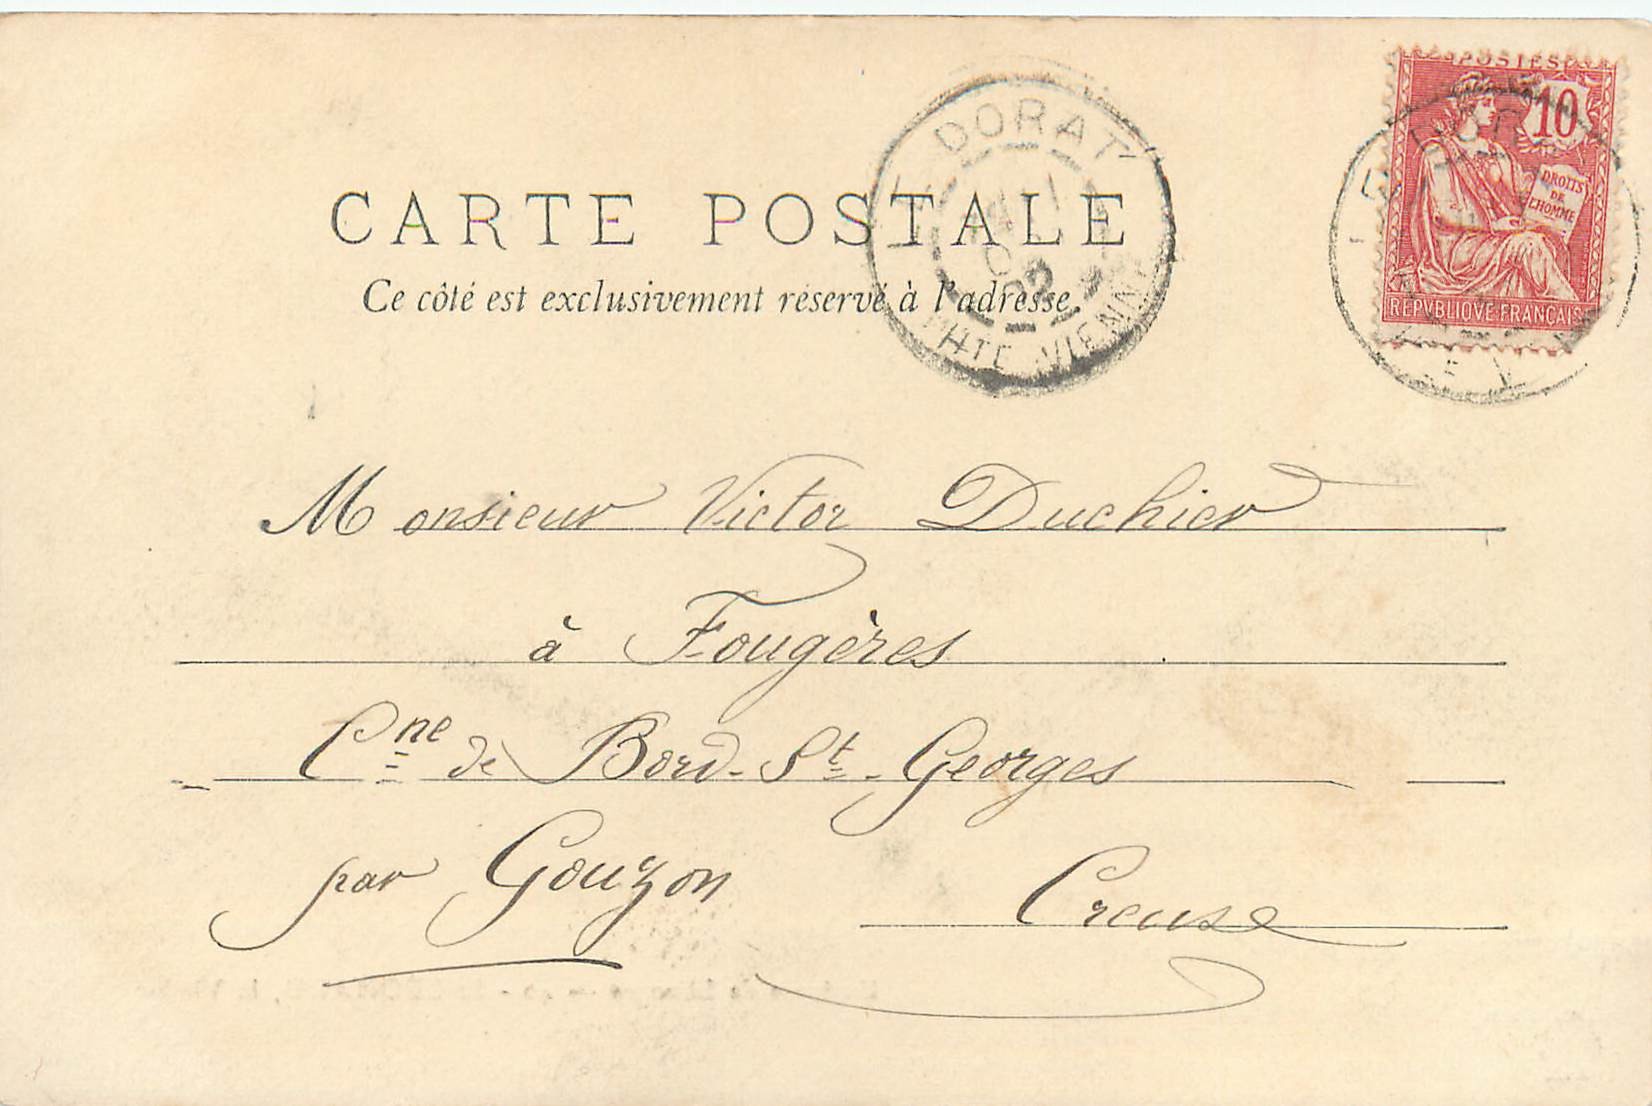 POSTES
10
DROITS
DE
L'HOMME
REPVBLIQVE FRANÇAISE
LE DORAT
02
HTE VIENNE
CARTE POSTALE
Ce côté est exclusivement réservé à l'adresse.
Monsieur Victor Duchier
à Fougères
Cne de Bord-St-Georges
par Gouzon Creuse